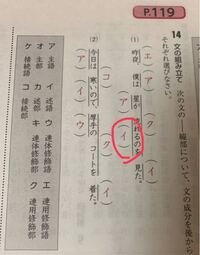 P.119
14 文の組み立て 次の文の――線部について、文の成分を後から
それぞれ選びなさい。
(エ)(ア)(ク)(イ)
(1) 昨夜、僕は 星が 流れるのを 見た。
(ア)(イ)
(コ)(ク)(イ)
(2) 今日は 寒いので、厚手の コートを 着た。
(ア)(イ)(ウ)
ア 主語 イ 述語 ウ 連体修飾語 エ 連用修飾語
オ 主部 カ 述部 キ 連体修飾部 ク 連用修飾部
ケ 接続語 コ 接続部